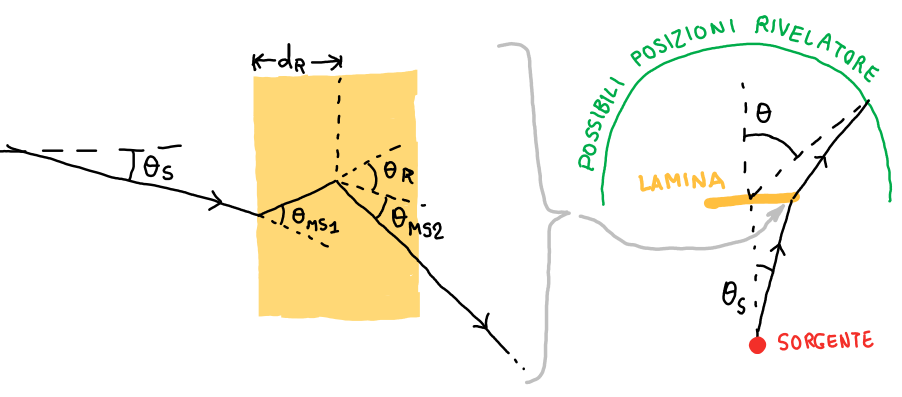 d_R
θ_S
θ_MS1
θ_R
θ_MS2
POSSIBILI POSIZIONI RIVELATORE
θ
LAMINA
θ_S
SORGENTE